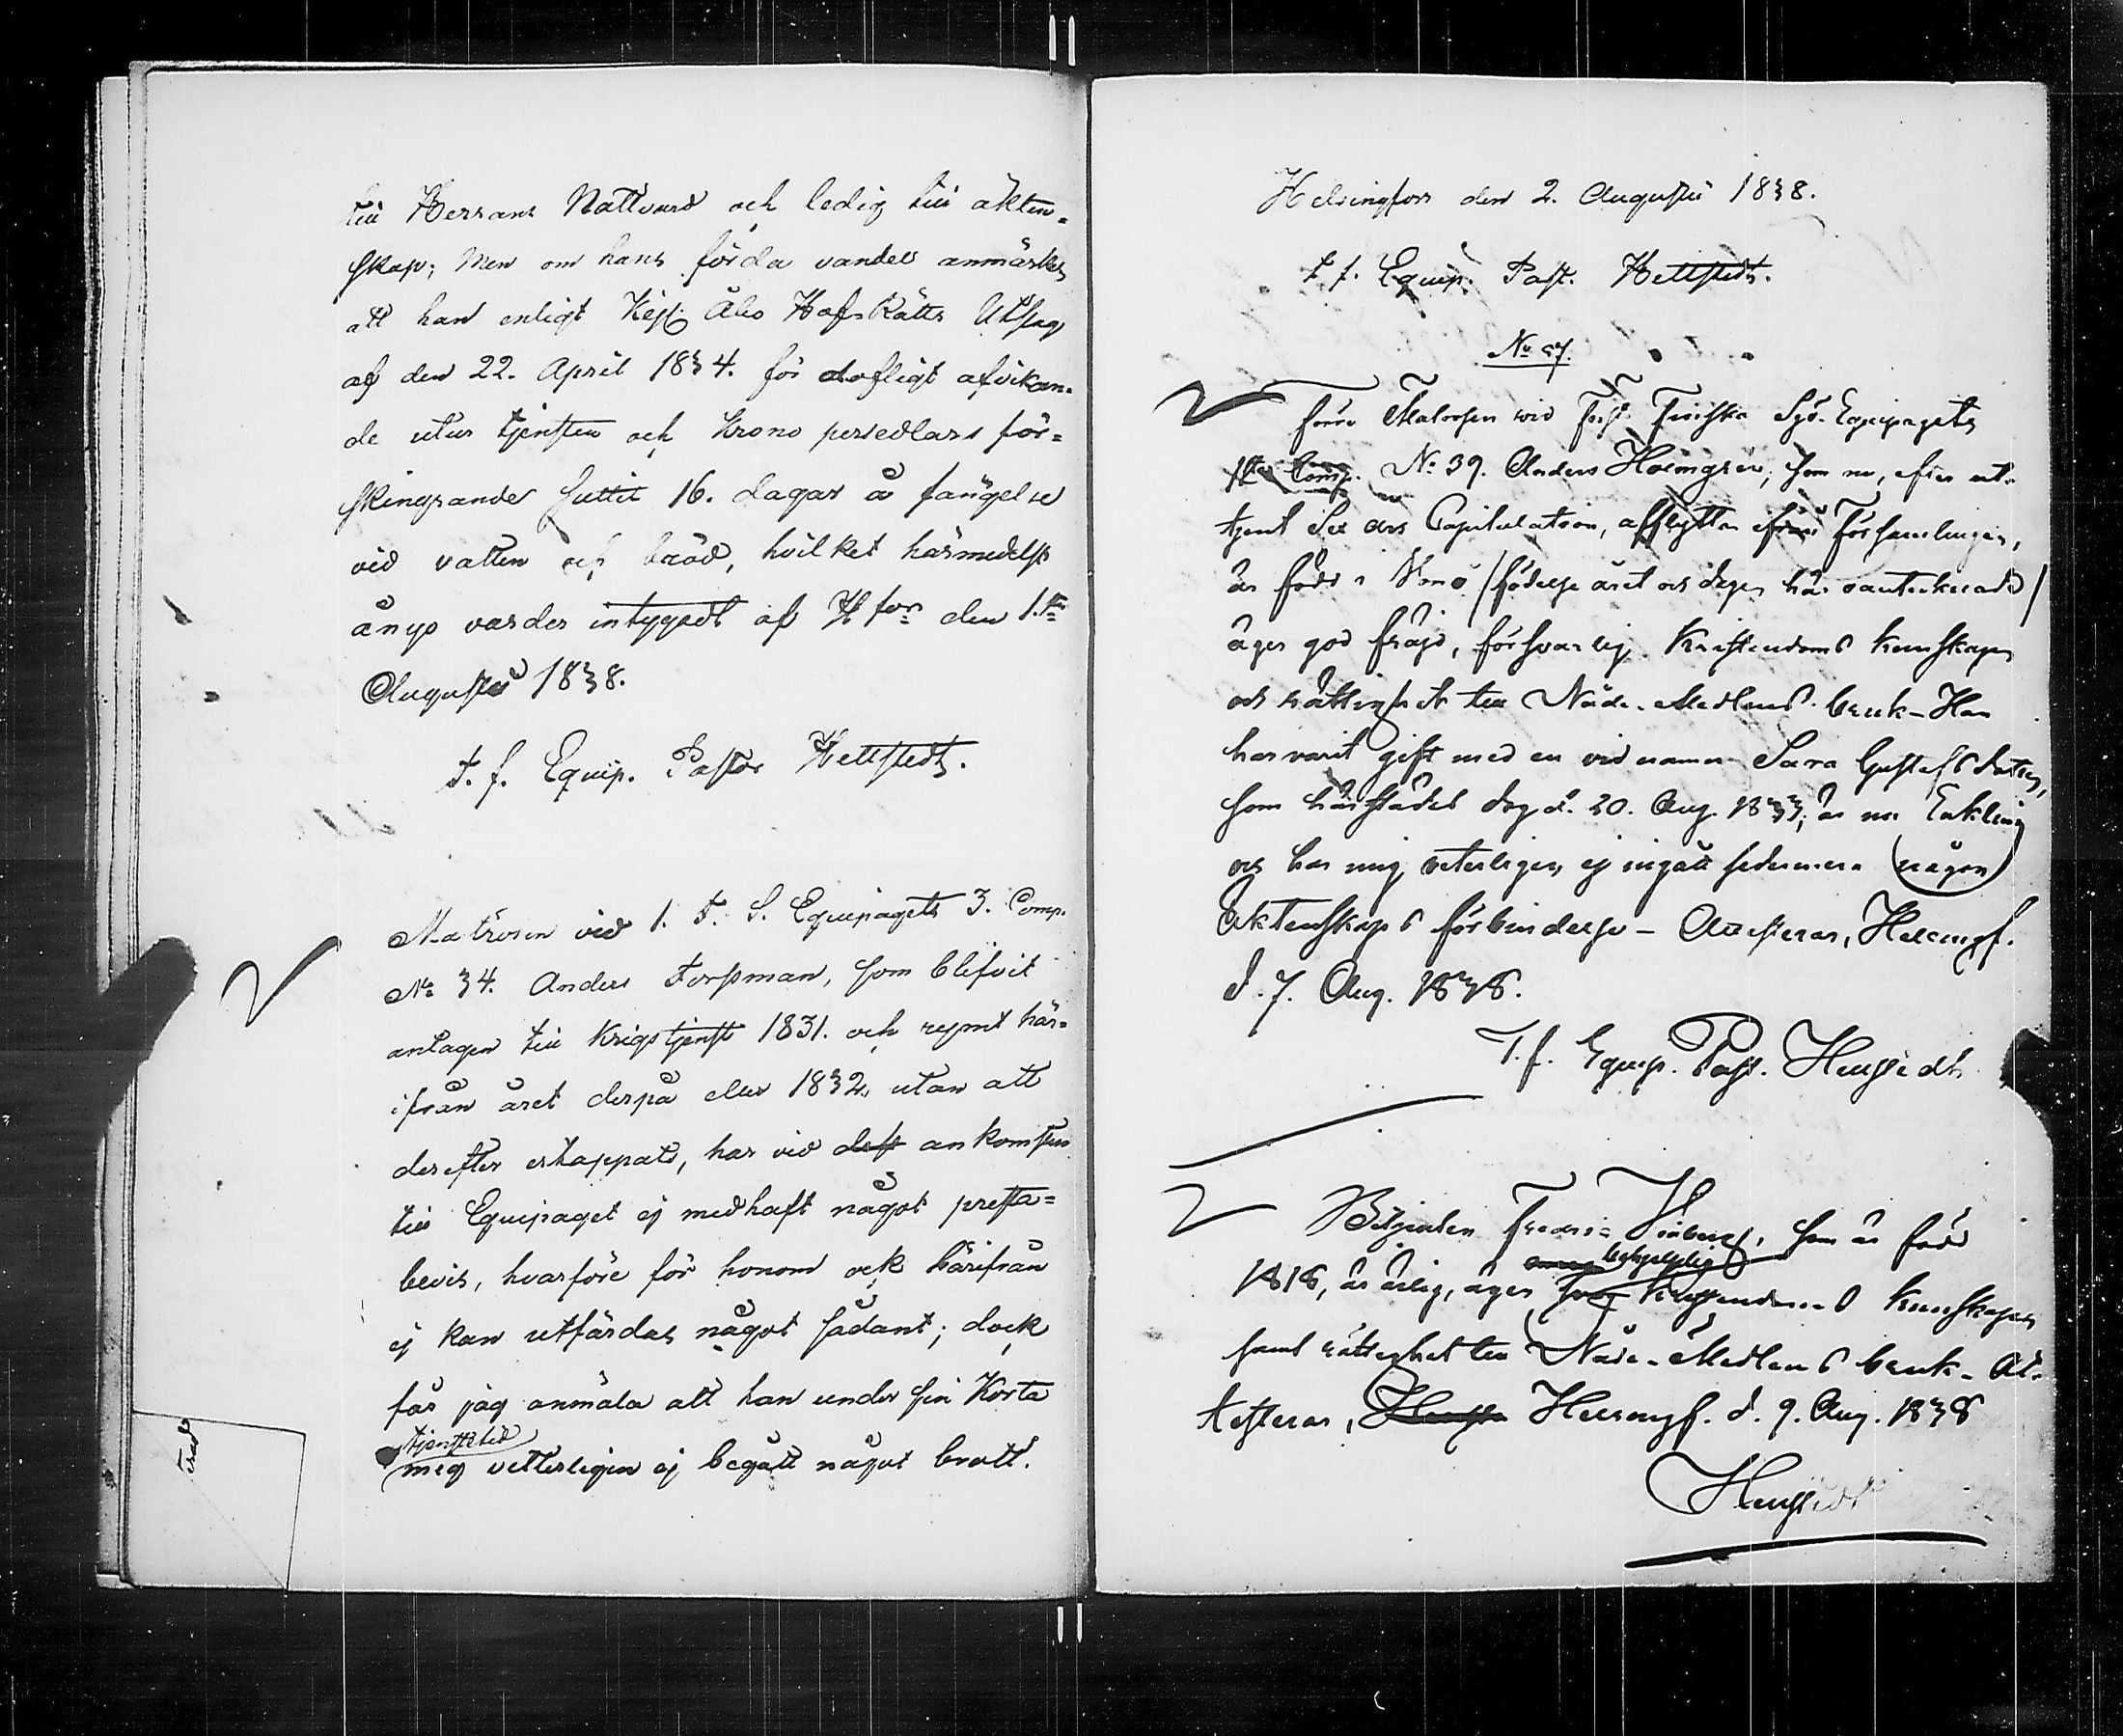 till Herrans Nattvard och ledig till äkten-
skap; Men om hans förda vandel anmärkes
att han enligt Kejs: Åbo Hof-Rätts Utslag
af den 22. April 1834. för olofligt afvikan-
de utur tjensten och Krono persedlars för-
skingrande suttit 16. dagar å fängelse
vid vatten och bröd, hvilket härmedelst
ånyo varder intygadt af H:fors den 1.sta
Augusti 1838.
T. f. Equip. Pastor Hellstedt.
Matrosen vid 1. F. S. Equipagets 3. Comp.
No 34. Anders Forssman, som blifvit
antagen till Krigstjenst 1831. och rymt här-
ifrån året derpå eller 1832, utan att
derefter ertappats, har vid dess ankomsten
till Equipaget ej medhaft något presta-
bevis, hvarföre för honom ock härifrån
ej kan utfärdas något sådant; dock
får jag anmäla att han under sin Korta
tjenstetid
mig vetterligen ej begått något brott.
Helsingfors den 2. Augusti 1838.
T. f. Equip. Past. Hellstedt.
No 57.
Förre Matrosen vid Första Finska Sjö-Equipagets
1sta Comp. No 39. Anders Holmgren, som nu, efter ut-
tjent Sex års Capitulation, afflyttar ifrån Församlingen,
är född i /födelse året och dagen här oantecknade/
äger god frejd, försvarlig Kristendoms kunskap
och rättighet till Nåde-Medlens bruk - Han
har varit gift med en vid namn Sara Gustafsdotter,
som härstädes dog d. 20. Aug. 1833, är nu Enkling
och har mig veterligen ej ingått sedermera någon
Äktenskaps förbindelse - Attesterar, Helsingf.
d. 7. Aug. 1838.
T. f. Equip. Past. Hellstedt
Fredric som är född
behjelplig
1818, är ärlig, äger Kristendoms kunskaper
samt rättighet till Nåde-Medlens bruk - At-
testeras, Helsingf. d. 9. Aug. 1838
Hellstedt